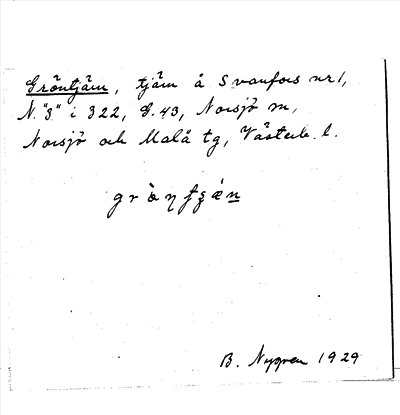 Gröntjärn, tjärn å Svanfors nr 1,
N. "3" i 322, G. 43, Norsjö sn,
Norsjö och Malå tg, Västerb. l.
B. Nygren 1929